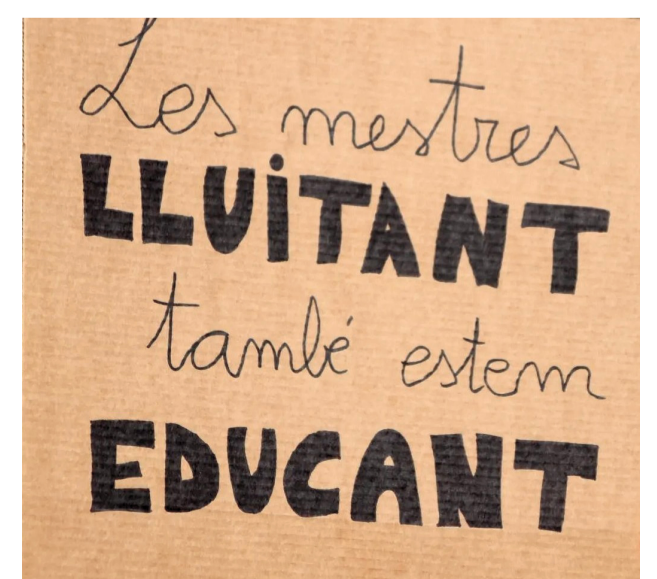 Les mestres
LLUiTANT
també estem
EDUCANT